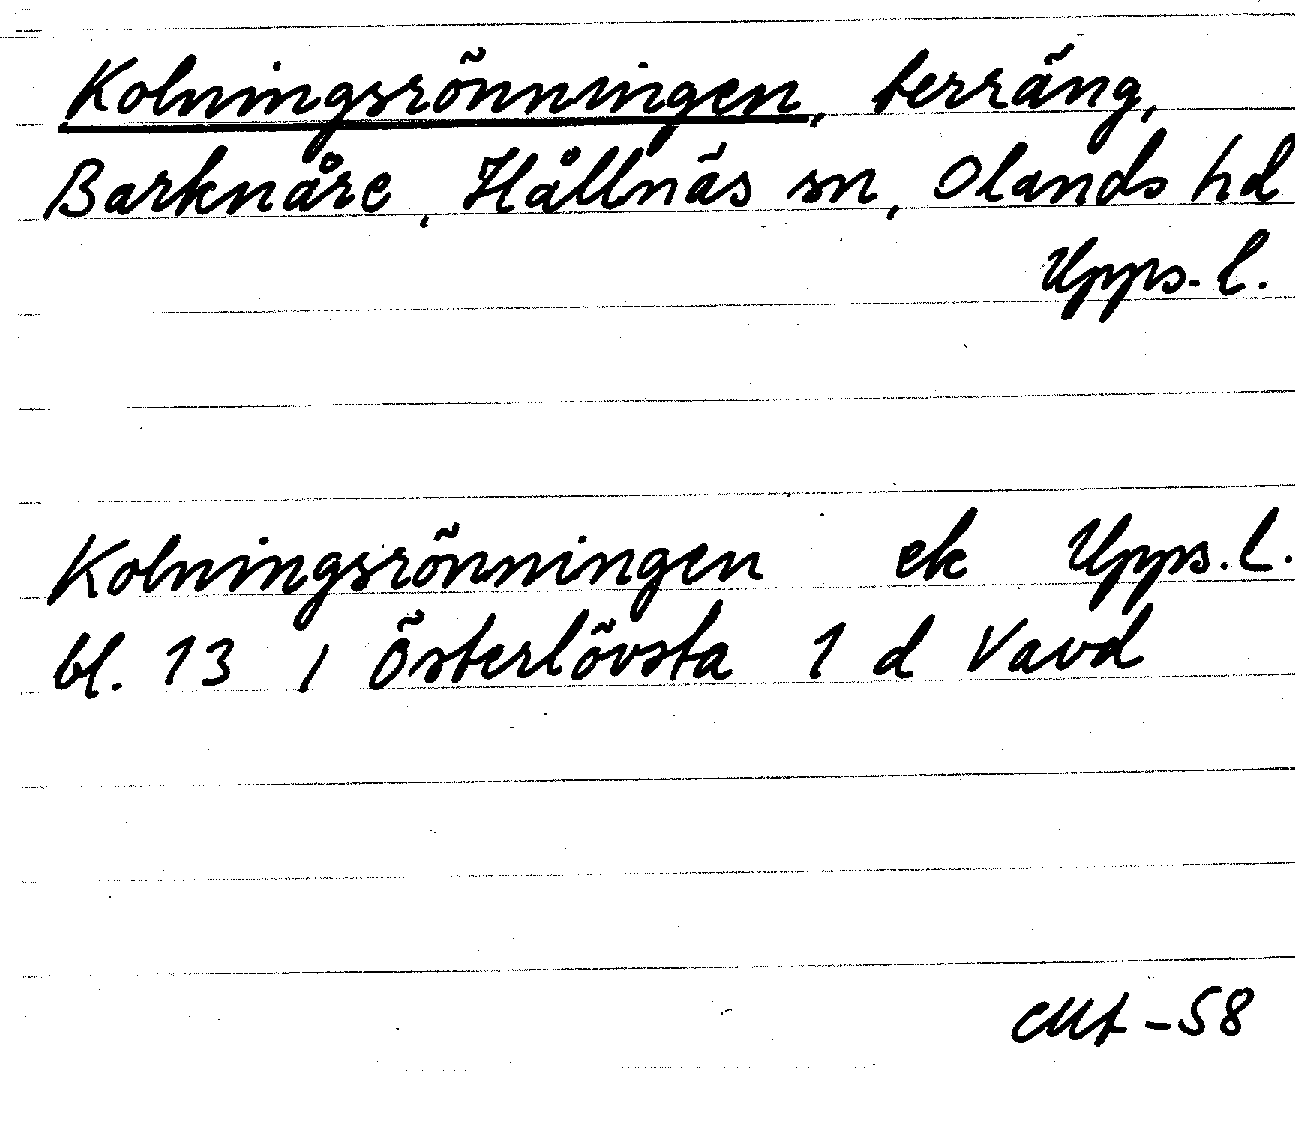 Kolningsrönningen, terräng,
Barknåre, Hållnäs sn, Olands hd
Upps. l.
Kolningsrönningen ek Upps. l.
bl. 13 / Österlövsta 1 d Vavd
-58